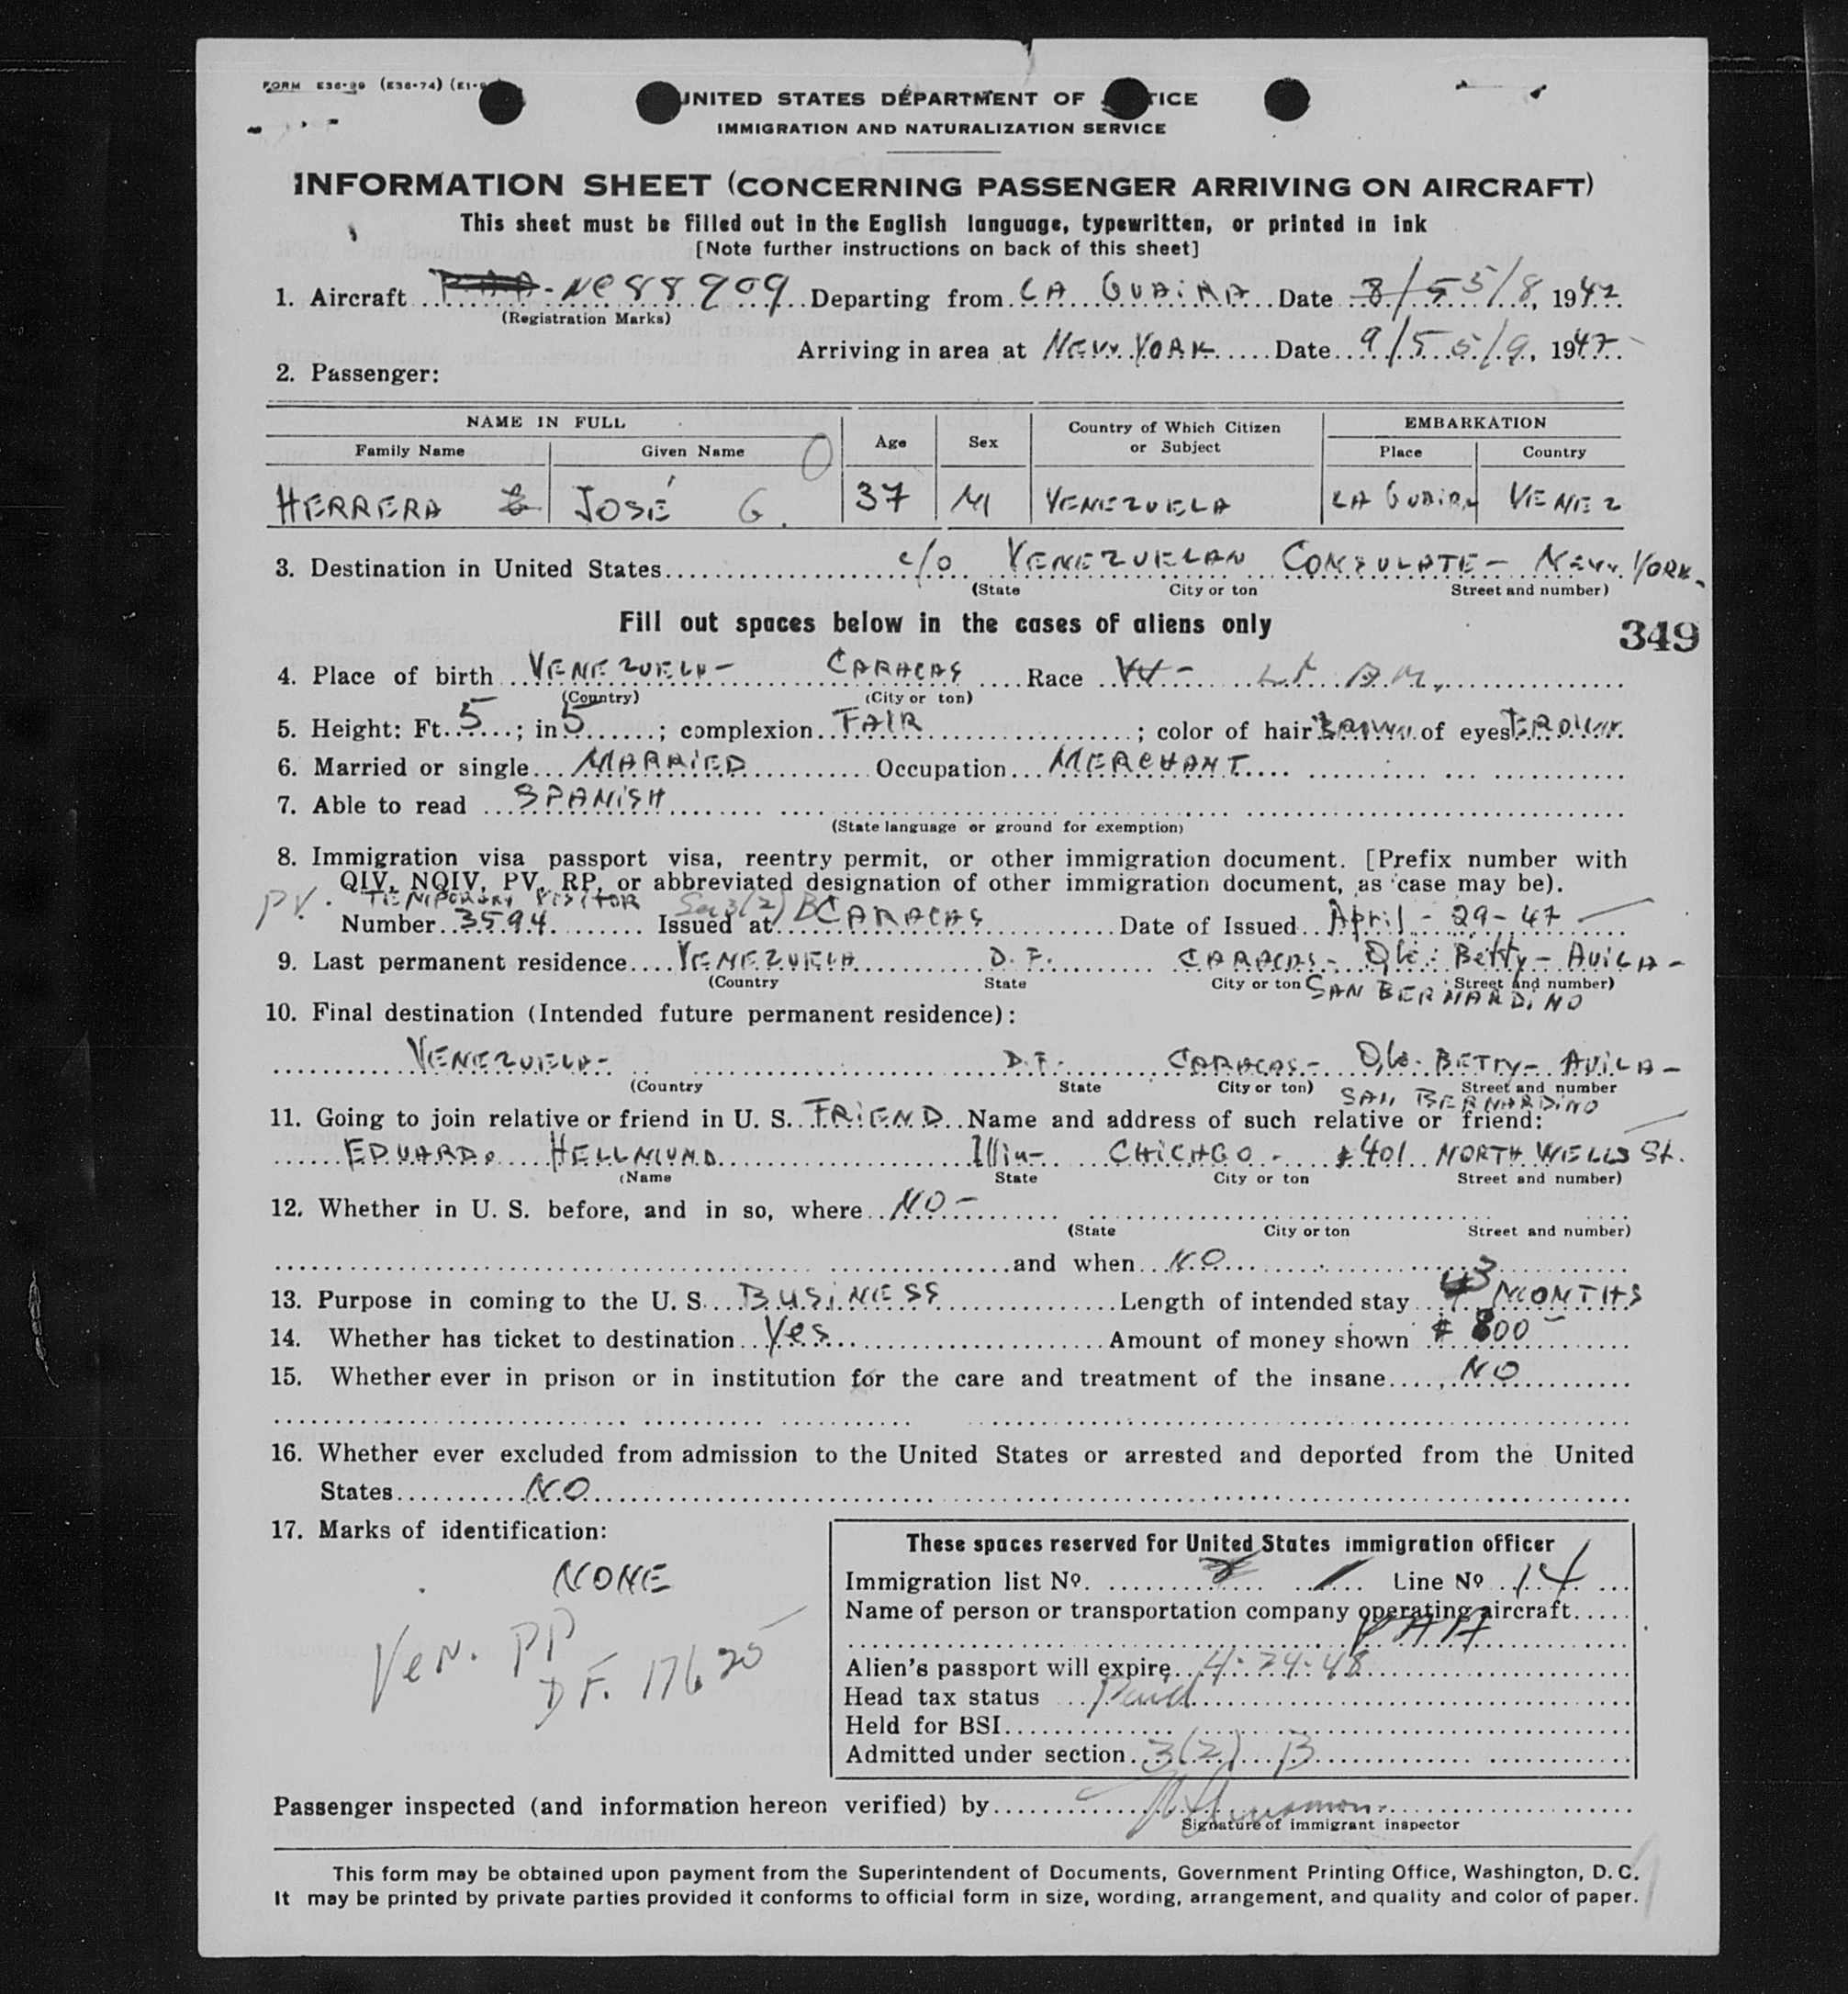 FORM E36-39 (E36-74) (E1-
UNITED STATES DEPARTMENT OF TICE
IMMIGRATION AND NATURALIZATION SERVICE
INFORMATION SHEET (CONCERNING PASSENGER ARRIVING ON AIRCRAFT)
This sheet must be filled out in the English language, typewritten, or printed in ink
[Note further instructions on back of this sheet]
1. Aircraft PAA - NC 88909 Departing from LA GUAIRA Date 8/5 5/8, 1947
(Registration Marks)
Arriving in area at NEW YORK Date 9/5 5/9, 1947
2. Passenger:
NAME IN FULL Age Sex Country of Which Citizen or Subject EMBARKATION
Family Name Given Name Place Country
HERRERA JOSÉ G. 37 M VENEZUELA LA GUAIRA VENEZ
3. Destination in United States c/o VENEZUELAN CONSULATE - NEW YORK-
(State City or ton Street and number)
Fill out spaces below in the cases of aliens only
349
4. Place of birth VENEZUELA - CARACAS Race W - Lt. AM.
(Country) (City or ton)
5. Height: Ft. 5; in 5; complexion FAIR; color of hair BROWN of eyes BROWN
6. Married or single MARRIED Occupation MERCHANT
7. Able to read SPANISH
(State language or ground for exemption)
8. Immigration visa passport visa, reentry permit, or other immigration document. [Prefix number with
QIV, NQIV, PV, RP, or abbreviated designation of other immigration document, as case may be).
PV. TEMPORARY VISITOR Sec 3(2) B
Number 3594 Issued at CARACAS Date of Issued April - 29 - 47
9. Last permanent residence VENEZUELA D.F. CARACAS - Qta. Betty - AVILA -
(Country State City or ton Street and number)
SAN BERNARDINO
10. Final destination (Intended future permanent residence):
VENEZUELA - D.F. CARACAS - Qta. BETTY - AVILA -
(Country State City or ton) Street and number
SAN BERNARDINO
11. Going to join relative or friend in U. S. FRIEND Name and address of such relative or friend:
EDUARDO HELLMUND Illin - CHICAGO - 401 NORTH WELLS St.
(Name State City or ton Street and number)
12. Whether in U. S. before, and in so, where NO -
(State City or ton Street and number)
and when NO
13. Purpose in coming to the U. S. BUSINESS Length of intended stay 3 MONTHS
14. Whether has ticket to destination Yes Amount of money shown $ 800 -
15. Whether ever in prison or in institution for the care and treatment of the insane NO
16. Whether ever excluded from admission to the United States or arrested and deported from the United
States NO
17. Marks of identification:
NONE
Ven. PP
DF. 17620
These spaces reserved for United States immigration officer
Immigration list No. 1 Line No 14
Name of person or transportation company operating aircraft
PAA
Alien's passport will expire 4-24-48
Head tax status Paid
Held for BSI
Admitted under section 3(2) B
Passenger inspected (and information hereon verified) by
Signature of immigrant inspector
This form may be obtained upon payment from the Superintendent of Documents, Government Printing Office, Washington, D. C.
It may be printed by private parties provided it conforms to official form in size, wording, arrangement, and quality and color of paper.